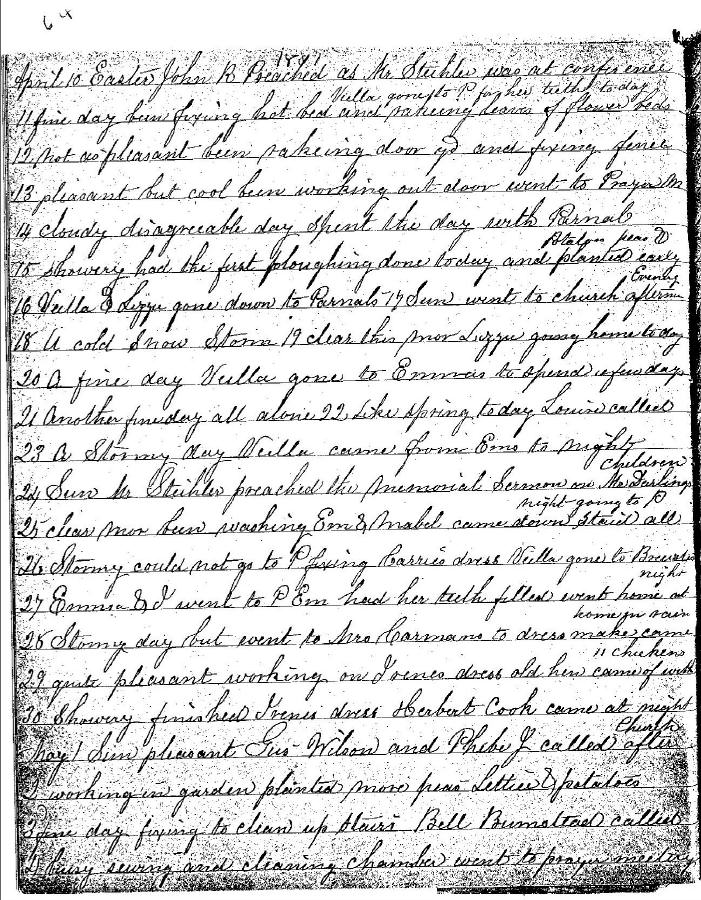 64
April 10 Easter John R Preached as Mr Steihler was at conference
Veilla gone to P for her teeth to day
11 fine day been fixing hot bed and rakeing leaves of flower beds
12 not as pleasant been rakeing door yd and fixing fence
13 pleasant but cool been working out door went to Prayer M
14 cloudy disagreeable day spent the day with Parnal
peas &
15 showery had the first ploughing done to day and planted early
Evening
16 Veilla & Lizzie gone down to Parnals 17 Sun went to church
18 A cold Snow Storm 19 clear this mor Lizzie going home to day
20 A fine day Veilla gone to Emmas to spend a few days
21 Another fine day all alone 22 Like spring to day Louise called
23 A Stormy day Veilla came from Ems to night
children
24 Sun Mr Steihler preached the Memorial Sermon on Mr Darlings
night going to P
25 clear mor been washing Em & Mabel came down Staid all
26 Stormy could not go to P fixing Carries dress Veilla gone to
night
27 Emma & I went to P Em had her teeth filled went home at
home in rain
28 Stormy day but went to Mrs Carmans to dress make came
11 chickens
29 quite pleasant working on Irenes dress old hen came of with
30 Showery finished Irenes dress Herbert Cook came at night
Church
May 1 Sun pleasant Gus Wilson and Phebe J called after
2 working in garden planted more peas Lettice & potatoes
3 fine day fixing to clean up stairs Bell Bumstead called
4 busy sewing and cleaning chamber went to prayer meeting